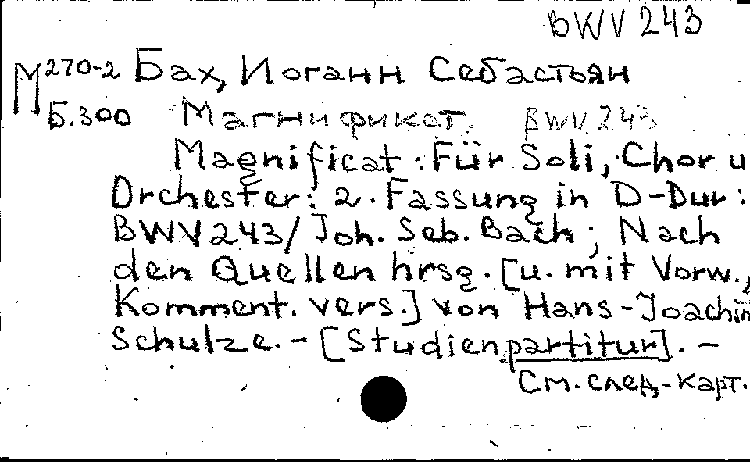 BWV 243
М 270-2 Бах, Иоганн Себастьян
Б.300 Магнификат. BWV 243
Magnificat : Für Soli, Chor u
Orchester: 2. Fassung in D-Dur :
BWV 243 / Joh. Seb. Bach ; Nach
den Quellen hrsg. [u. mit Vorw.,
Komment. vers.] von Hans-Joachim
Schulze. – [Studienpartitur]. –
См. след. карт.